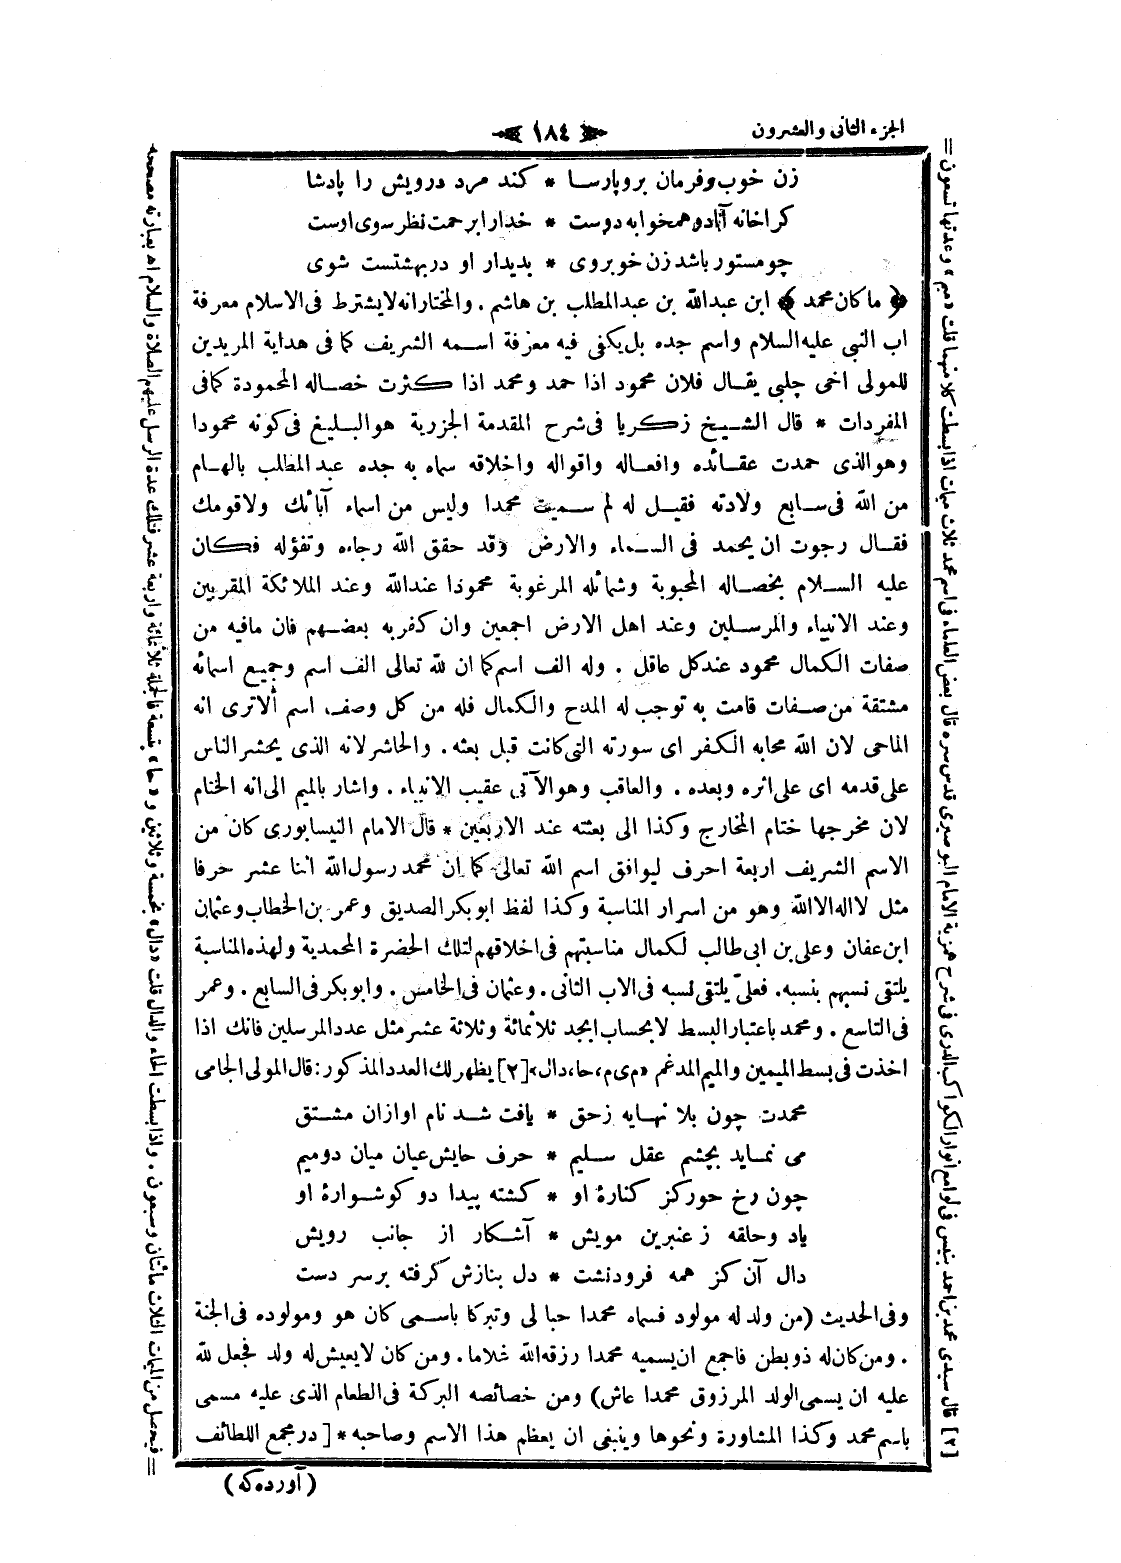 الجزء الثانى والعشرون
١٨٤
زن خوب وفرمان بر وپارسا * كند مرد درويش را پادشا
كرا خانه آباد وهمخوابه دوست * خدارا برحمت نظر سوى اوست
چو مستور باشد زن خوبروى * بديدار او در بهشتست شوى
﴿ ما كان محمد ﴾ ابن عبدالله بن عبدالمطلب بن هاشم . والمختار انه لايشترط فى الاسلام معرفة
اب النبى عليه السلام واسم جده بل يكفى فيه معرفة اسمه الشريف كما فى هداية المريدين
للمولى اخى چلبى يقال فلان محمود اذا حمد ومحمد اذا كثرت خصاله المحمودة كمافى
المفردات * قال الشيخ زكريا فى شرح المقدمة الجزرية هوالبليغ فى كونه محمودا
وهوالذى حمدت عقائده وافعاله واقواله واخلاقه سماه به جده عبد المطلب بالهام
من الله فى سابع ولادته فقيل له لم سميت محمدا وليس من اسماء آبائك ولاقومك
فقال رجوت ان يحمد فى السماء والارض وقد حقق الله رجاءه وتفؤله فكان
عليه السلام بخصاله المحبوبة وشمائله المرغوبة محمودا عندالله وعند الملائكة المقربين
وعند الانبياء والمرسلين وعند اهل الارض اجمعين وان كفر به بعضهم فان مافيه من
صفات الكمال محمود عندكل عاقل . وله الف اسم كما ان لله تعالى الف اسم وجميع اسمائه
مشتقة من صفات قامت به توجب له المدح والكمال فله من كل وصف اسم ألاترى انه
الماحى لان الله محابه الكفر اى سورته التى كانت قبل بعثه . والحاشر لانه الذى يحشر الناس
على قدمه اى على اثره وبعده . والعاقب وهوالآتى عقيب الانبياء . واشار بالميم الى انه الختام
لان مخرجها ختام المخارج وكذا الى بعثته عند الاربعين * قال الامام النيسابورى كان من
الاسم الشريف اربعة احرف ليوافق اسم الله تعالى كما ان محمد رسول الله اثنا عشر حرفا
مثل لااله الاالله وهو من اسرار المناسبة وكذا لفظ ابوبكر الصديق وعمر بن الخطاب وعثمان
ابن عفان وعلى بن ابى طالب لكمال مناسبتهم فى اخلاقهم لتلك الحضرة المحمدية ولهذه المناسبة
يلتقى نسبهم بنسبه . فعلىّ يلتقى نسبه فى الاب الثانى . وعثمان فى الخامس . وابوبكر فى السابع . وعمر
فى التاسع . ومحمد باعتبار البسط لابحساب ابجد ثلاثمائة وثلاثة عشر مثل عدد المرسلين فانك اذا
اخذت فى بسط الميمين والميم المدغم «م ى م، حا، دال» [٢] يظهر لك العدد المذكور : قال المولى الجامى
محمدت چون بلا نهايه زحق * يافت شد نام او ازان مشتق
مى نمايد بچشم عقل سليم * حرف حايش عيان ميان دوميم
چون رخ حور كز كنارهٔ او * كشته پيدا دو كوشوارهٔ او
ياد وحلقه ز عنبرين مويش * آشكار از جانب رويش
دال آن كز همه فرودنشت * دل بنازش كرفته برسر دست
وفى الحديث (من ولد له مولود فسماه محمدا حبا لى وتبركا باسمى كان هو ومولوده فى الجنة
. ومن كان له ذوبطن فاجمع ان يسميه محمدا رزقه الله غلاما . ومن كان لايعيش له ولد فجعل لله
عليه ان يسمى الولد المرزوق محمدا عاش) ومن خصائصه البركة فى الطعام الذى عليه مسمى
باسم محمد وكذا المشاورة ونحوها وينبغى ان يعظم هذا الاسم وصاحبه * [ در مجمع اللطائف
(آورده كه)
[٢] قال سيدى محمد بن احمد بنيس فى لوامع انوار الكواكب الدرى فى شرح همزية الامام البوصيرى قدس سره قال بعض العلماء فى اسم محمد ثلاث ميمات اذا بسطت كلا منها قلت «ميم» وعدتها تسعون =
= فيحصل من الميمات الثلاث مائتان وسبعون . واذا بسطت الحاء والدال قلت «دال» بخمسة وثلاثين و«حا» بتسعة فالجملة ثلاثمائة واربعة عشر فتلك عدة الرسل عليهم الصلاة والسلام اه بعبارته مصححه